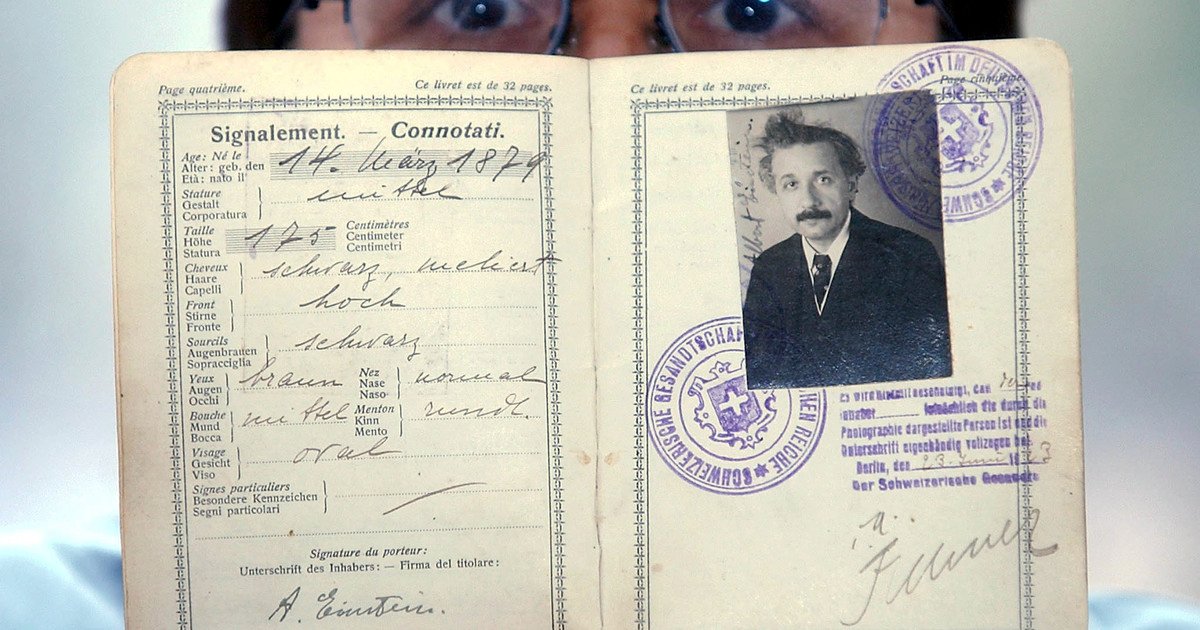 Page quatrième.
Ce livret est de 32 pages.
Signalement. — Connotati.
Age: Né le
Alter: geb. den
Età: nato il
14. März 1879
Stature
Gestalt
Corporatura
mittel
Taille
Höhe
Statura
175
Centimètres
Centimeter
Centimetri
Cheveux
Haare
Capelli
schwarz, meliert
Front
Stirne
Fronte
hoch
Sourcils
Augenbrauen
Sopracciglia
schwarz
Yeux
Augen
Occhi
braun
Nez
Nase
Naso
normal
Bouche
Mund
Bocca
mittel
Menton
Kinn
Mento
rund.
Visage
Gesicht
Viso
oval
Signes particuliers
Besondere Kennzeichen
Segni particolari
Signature du porteur:
Unterschrift des Inhabers: — Firma del titolare:
A. Einstein.
Ce livret est de 32 pages.
Page cinquième.
SCHAFT IM DEU
EN REICHE ★ SCHWEIZ
Albert Einstein
SCHWEIZERISCHE GESANDTSCHAF
HEN REICHE ★
Es wird hiermit bescheinigt, das der
Inhaber
die durch die
Photographie dargestellte Person ist und die
Unterschrift eigenhändig vollzogen hat.
Berlin, den 23. Juni 1923
Der Schweizerische
i. A.